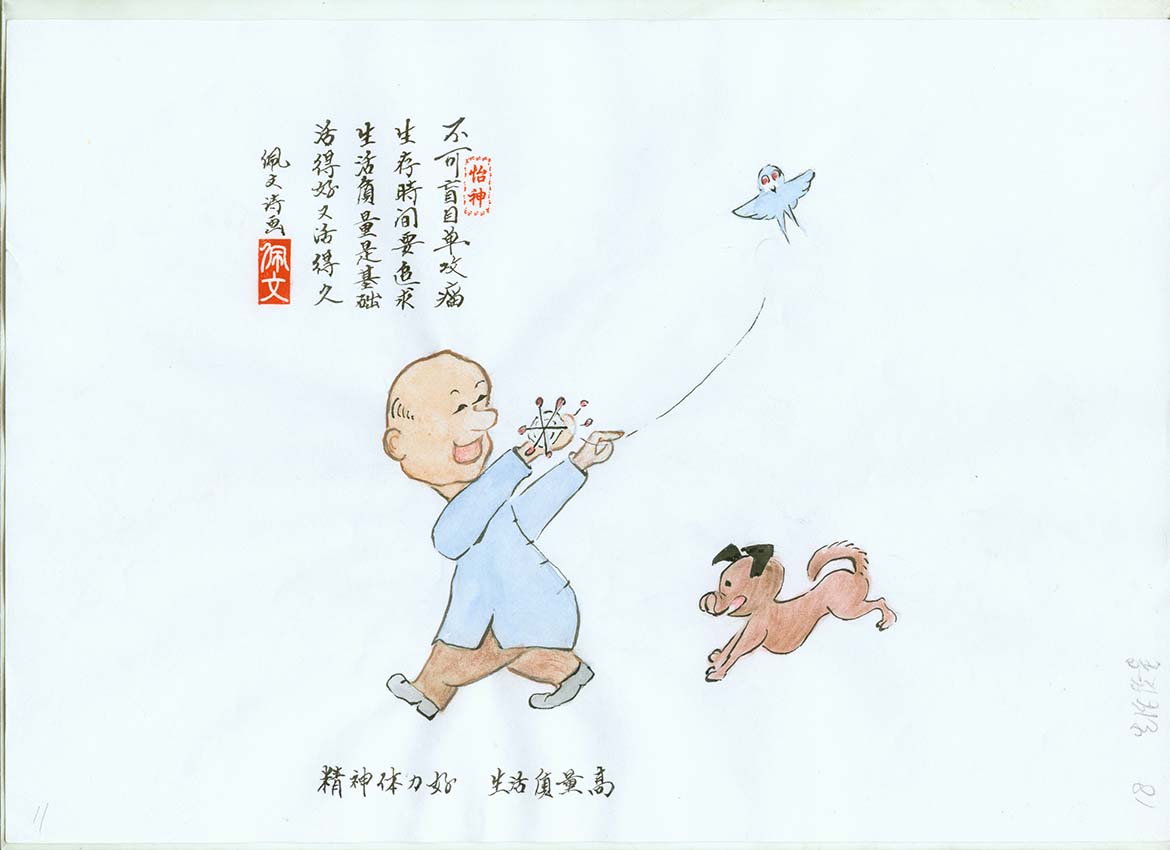 怡神
不可盲目单攻瘤
生存時间要追求
生活质量是基础
活得好又活得久
佩文诗画
佩文
精神体力好 生活质量高
11
18